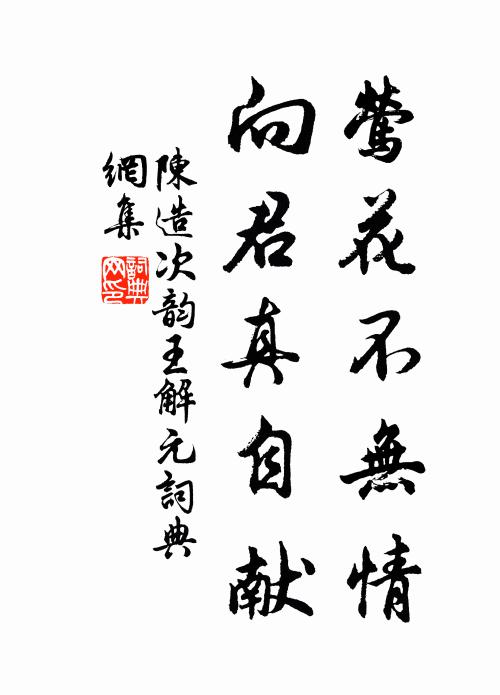 鶯花不無情
向君真自献
陳造次韵王解元詞典
網集
詞典
网印